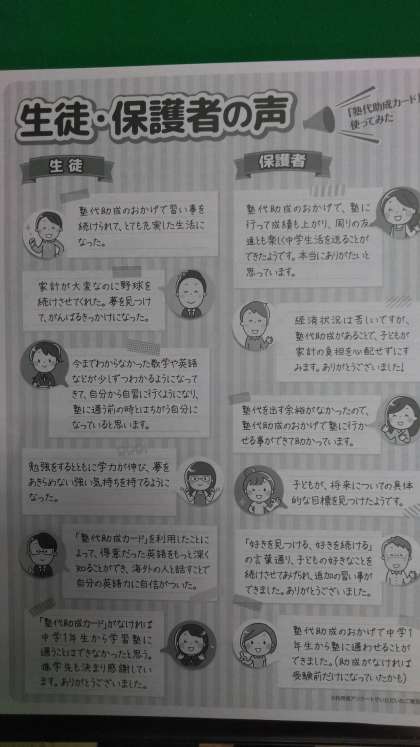 生徒・保護者の声
「塾代助成カード」
使ってみた
生徒
塾代助成のおかげで習い事を
続けられて、とても充実した生活に
なった。
家計が大変なのに野球を
続けさせてくれた。夢を見つけ
て、がんばるきっかけになった。
今までわからなかった数学や英語
などが少しずつわかるようになって
きて、自分から自習に行くようになり、
塾に通う前の時とはちがう自分に
なっていると思います。
勉強をするとともに学力が伸び、夢を
あきらめない強い気持ちを持てるように
なった。
「塾代助成カード」を利用したことに
よって、得意だった英語をもっと深く
知ることができ、海外の人と話すことで
自分の英語力に自信がついた。
「塾代助成カード」がなければ
中学1年生から学習塾に
通うことはできなかったと思う。
進学先も決まり感謝してい
ます。ありがとうございました。
保護者
塾代助成のおかげで、塾に
行って成績も上がり、周りの友
達とも楽しく中学生活を送ることが
できたようです。本当にありがたいと
思っています。
経済状況は苦しいですが、
塾代助成があることで、子どもが
家計の負担を心配せずにす
みます。ありがとうございました!
塾を出す余裕がなかったので、
塾代助成のおかげで塾に行か
せる事ができて助かっています。
子どもが、将来についての具体
的な目標を見つけたようです。
「好きを見つける、好きを続ける」
の言葉通り、子どもの好きなことを
続けさせてあげられ、追加の習い事が
できました。ありがとうございました。
塾代助成のおかげで中学1
年生から塾に通わせることが
できました。(助成がなければ
受験前だけになっていたかも)